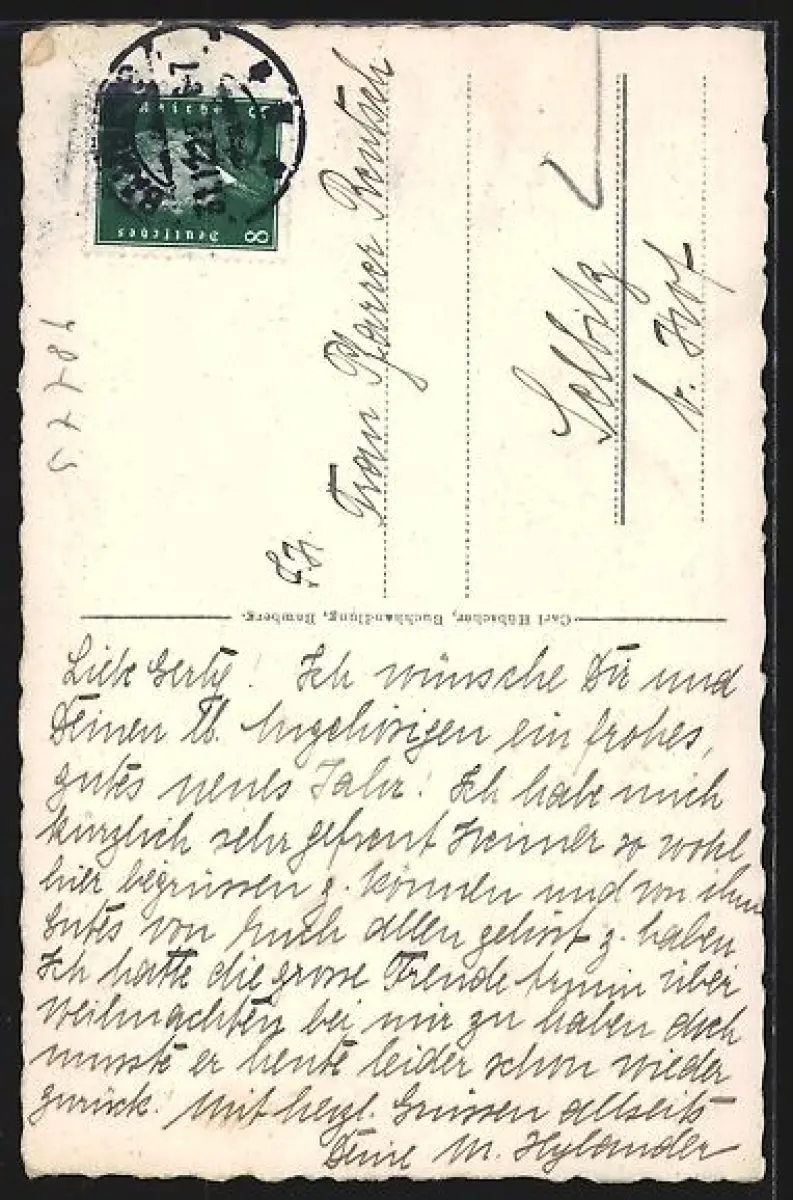 Deutsches
8
Reich
I. H.
Frau Pfarrer Rentsch
Selbitz
b. Hof
Carl Hübscher, Buchhandlung, Bamberg.
Liebe Gerty! Ich wünsche Dir und
Deinen lb. Angehörigen ein frohes,
gutes neues Jahr! Ich habe mich
kürzlich sehr gefreut Heiner so wohl
hier begrüssen z. können und von ihm
Gutes von Euch allen gehört z. haben
Ich hatte die grosse Freude Erwin über
Weihnachten bei mir zu haben doch
musste er heute leider schon wieder
zurück. Mit herzl. Grüssen allseits
Deine M. Hylander